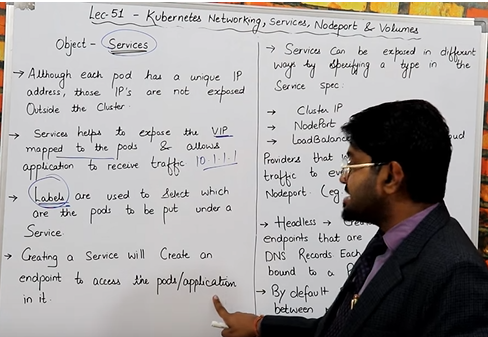 Lec-51 - Kubernetes Networking, Services, Nodeport & Volumes
Object - Services
→ Although each pod has a unique IP
address, those IP's are not exposed
Outside the Cluster.
→ Services helps to expose the VIP
mapped to the pods & allows
application to receive traffic 10.1.1.1
→ Labels are used to Select which
are the pods to be put under a
Service.
→ Creating a Service will Create an
endpoint to access the pods/application
in it.
→ Services Can be exposed in different
ways by specifying a type in the
Service spec:
→ Cluster IP
→ NodePort
→ LoadBalance
Providers that
traffic to
Nodeport. (eg
→ Headless →
endpoints that are
DNS Records Each
bound to a
→ By default
between